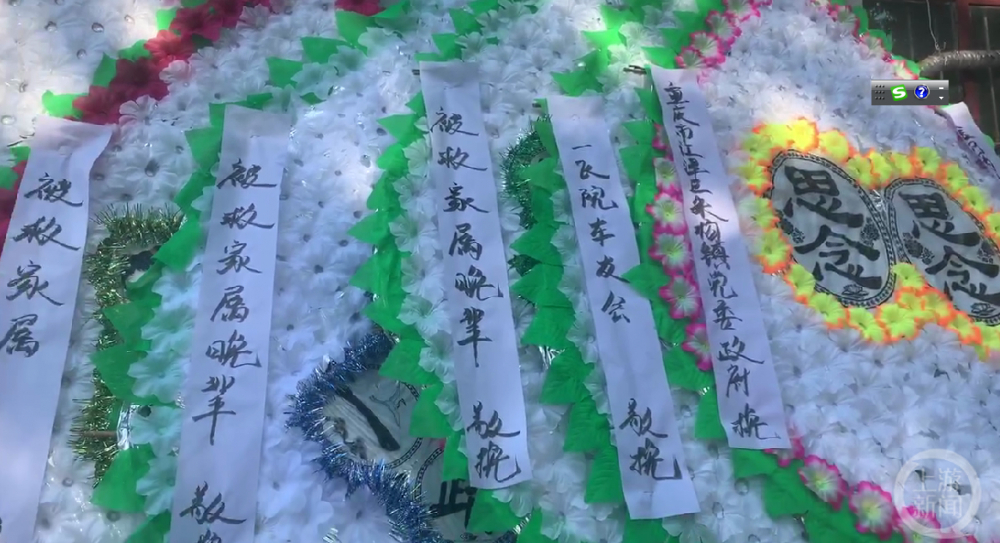 被救家属
被救家属晚辈 敬
被救家属晚辈 敬挽
一民院车友会 敬挽
重庆市江津区朱杨镇党委政府 挽
思念
思念
上游新闻